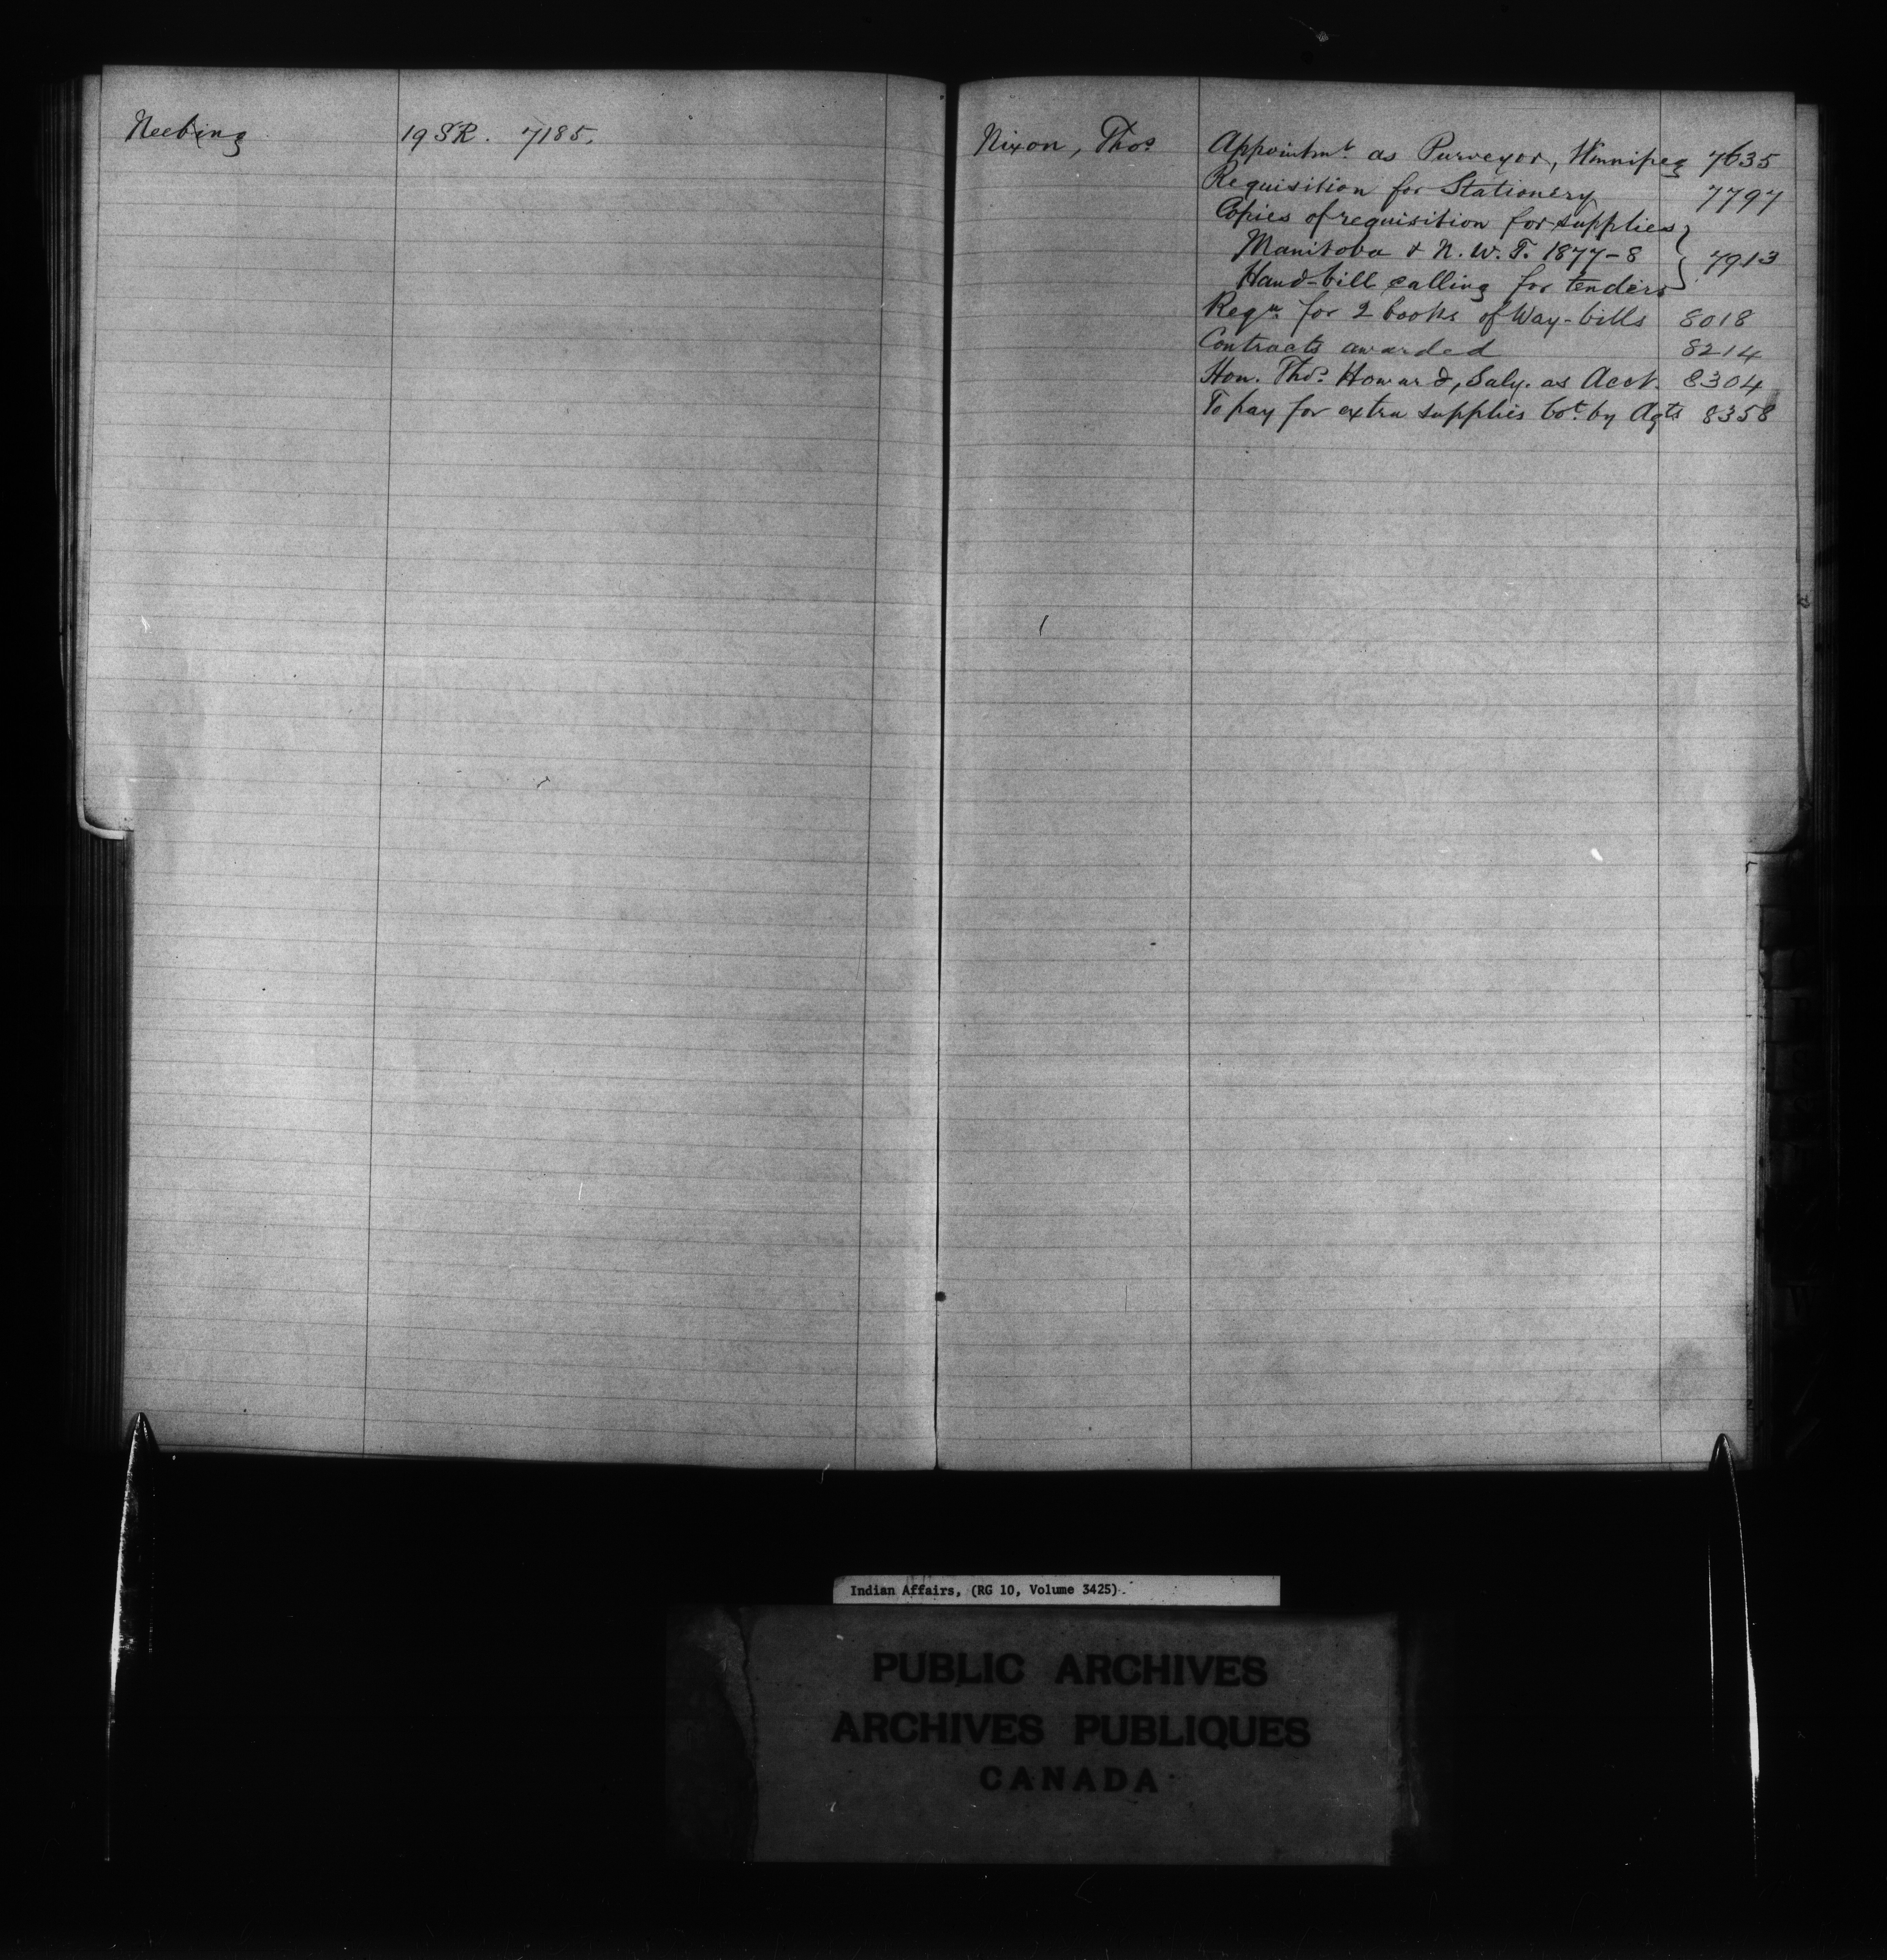 Neebing 19 SR. 7185.
Nixon, Thos. Appointmt. as Purveyor, Winnipeg 7635
Requisition for Stationery 7797
Copies of requisition for supplies
Manitoba & N. W. T. 1877-8 } 7913
Hand-bill calling for tenders
Reqn. for 2 books of Way-bills 8018
Contracts awarded 8214
Hon. Thos. Howard, Saly. as Acct. 8304
To pay for extra supplies bot. by Agts 8358
Indian Affairs, (RG 10, Volume 3425)
PUBLIC ARCHIVES
ARCHIVES PUBLIQUES
CANADA